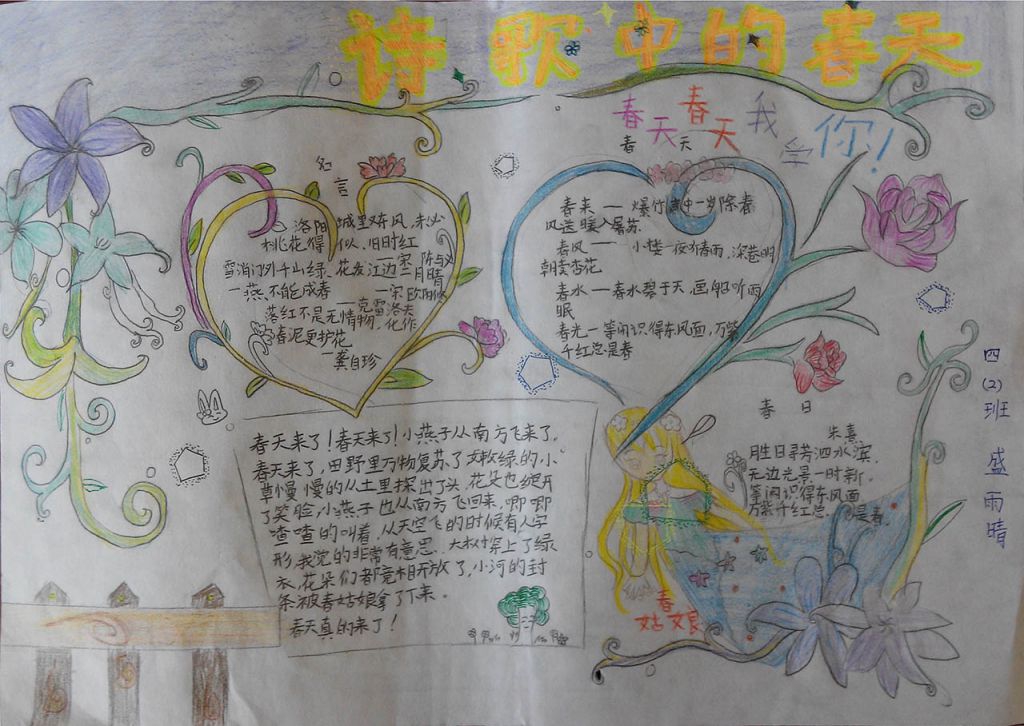 诗歌中的春天
春天春天我
学你!
春天
名
言
洛阳城里又东风,未必
桃花得似旧时红
——宋 陈与义
雪消门外千山绿、花发江边二月晴
——宋 欧阳修
一燕不能成春
——克雷洛夫
落红不是无情物 化作
春泥更护花
——龚自珍
春来—— 爆竹声中一岁除春
风送暖入屠苏.
春风—— 小楼一夜听春雨,深巷明
朝卖杏花
春水——春水碧于天,画船听雨
眠
春光—等闲识得东风面,万紫
千红总是春
春天来了!春天来了!小燕子从南方飞来了。
春天来了,田野里万物复苏了嫩绿的小
草慢慢的从土里探出了头,花朵也绽开
了笑脸,小燕子也从南方飞回来,唧唧
喳喳的叫着,从天空飞的时候有人字
形,我觉的非常有意思.大树穿上了绿
衣,花朵们都竞相开放了,小河的封
条被春姑娘拿了下来。
春天真的来了!
春日
朱熹
胜日寻芳泗水滨,
无边光景一时新。
等闲识得东风面
万紫千红总是春。
春
姑娘
四(2)班 盛雨晴